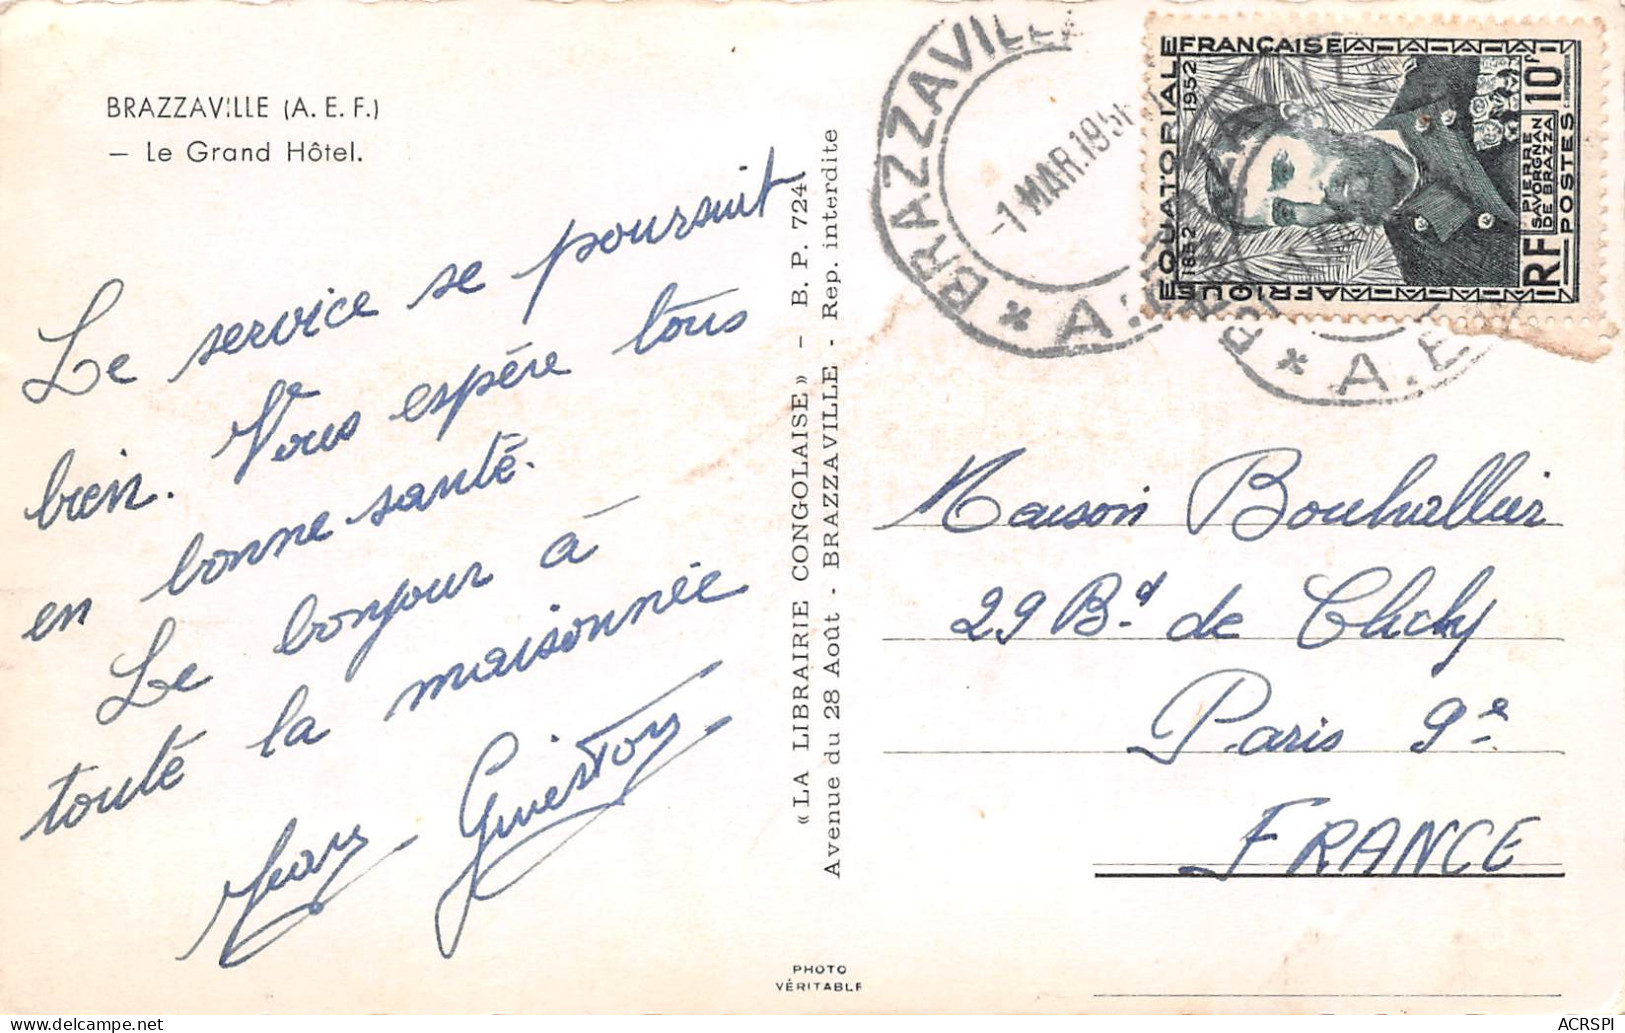 BRAZZAVILLE (A. E. F.)
— Le Grand Hôtel.
Le service se poursuit
bien. Vous espère tous
en bonne santé.
Le bonjour à
toute la maisonnée
« LA LIBRAIRIE CONGOLAISE » - B. P. 724
Avenue du 28 Août - BRAZZAVILLE - Rep. interdite
PHOTO
VÉRITABLE
BRAZZAVILLE
-1 MAR.195
* A.E.
* A.E.
AFRIQUE EQUATORIALE FRANÇAISE
1852 1952
PIERRE
SAVORGNAN
DE BRAZZA
RF POSTES 10F
Maison Bouhallier
29 Bd de Clichy
Paris 9e
FRANCE
ACRSPI